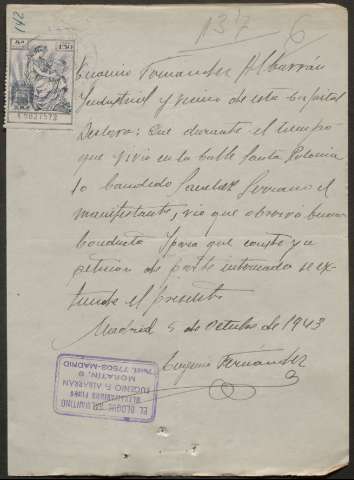 142
137 6
1,50
Eugenio Fernandez Albarrán
Industrial y vecino de esta Capital
Declara: Que durante el tiempo
que vivió en la Calle Santa Polonia
10 Serrano el
manifestante, vio que observó buena
conducta Y para que conste y a
petición de parte interesada se ex-
tiende el presente
Madrid 5 de Octubre de 1943
Eugenio Fernández
EL BLOQUE
EUGENIO F. ALBARRAN
MORATIN, 9
Telf. 77503-MADRID